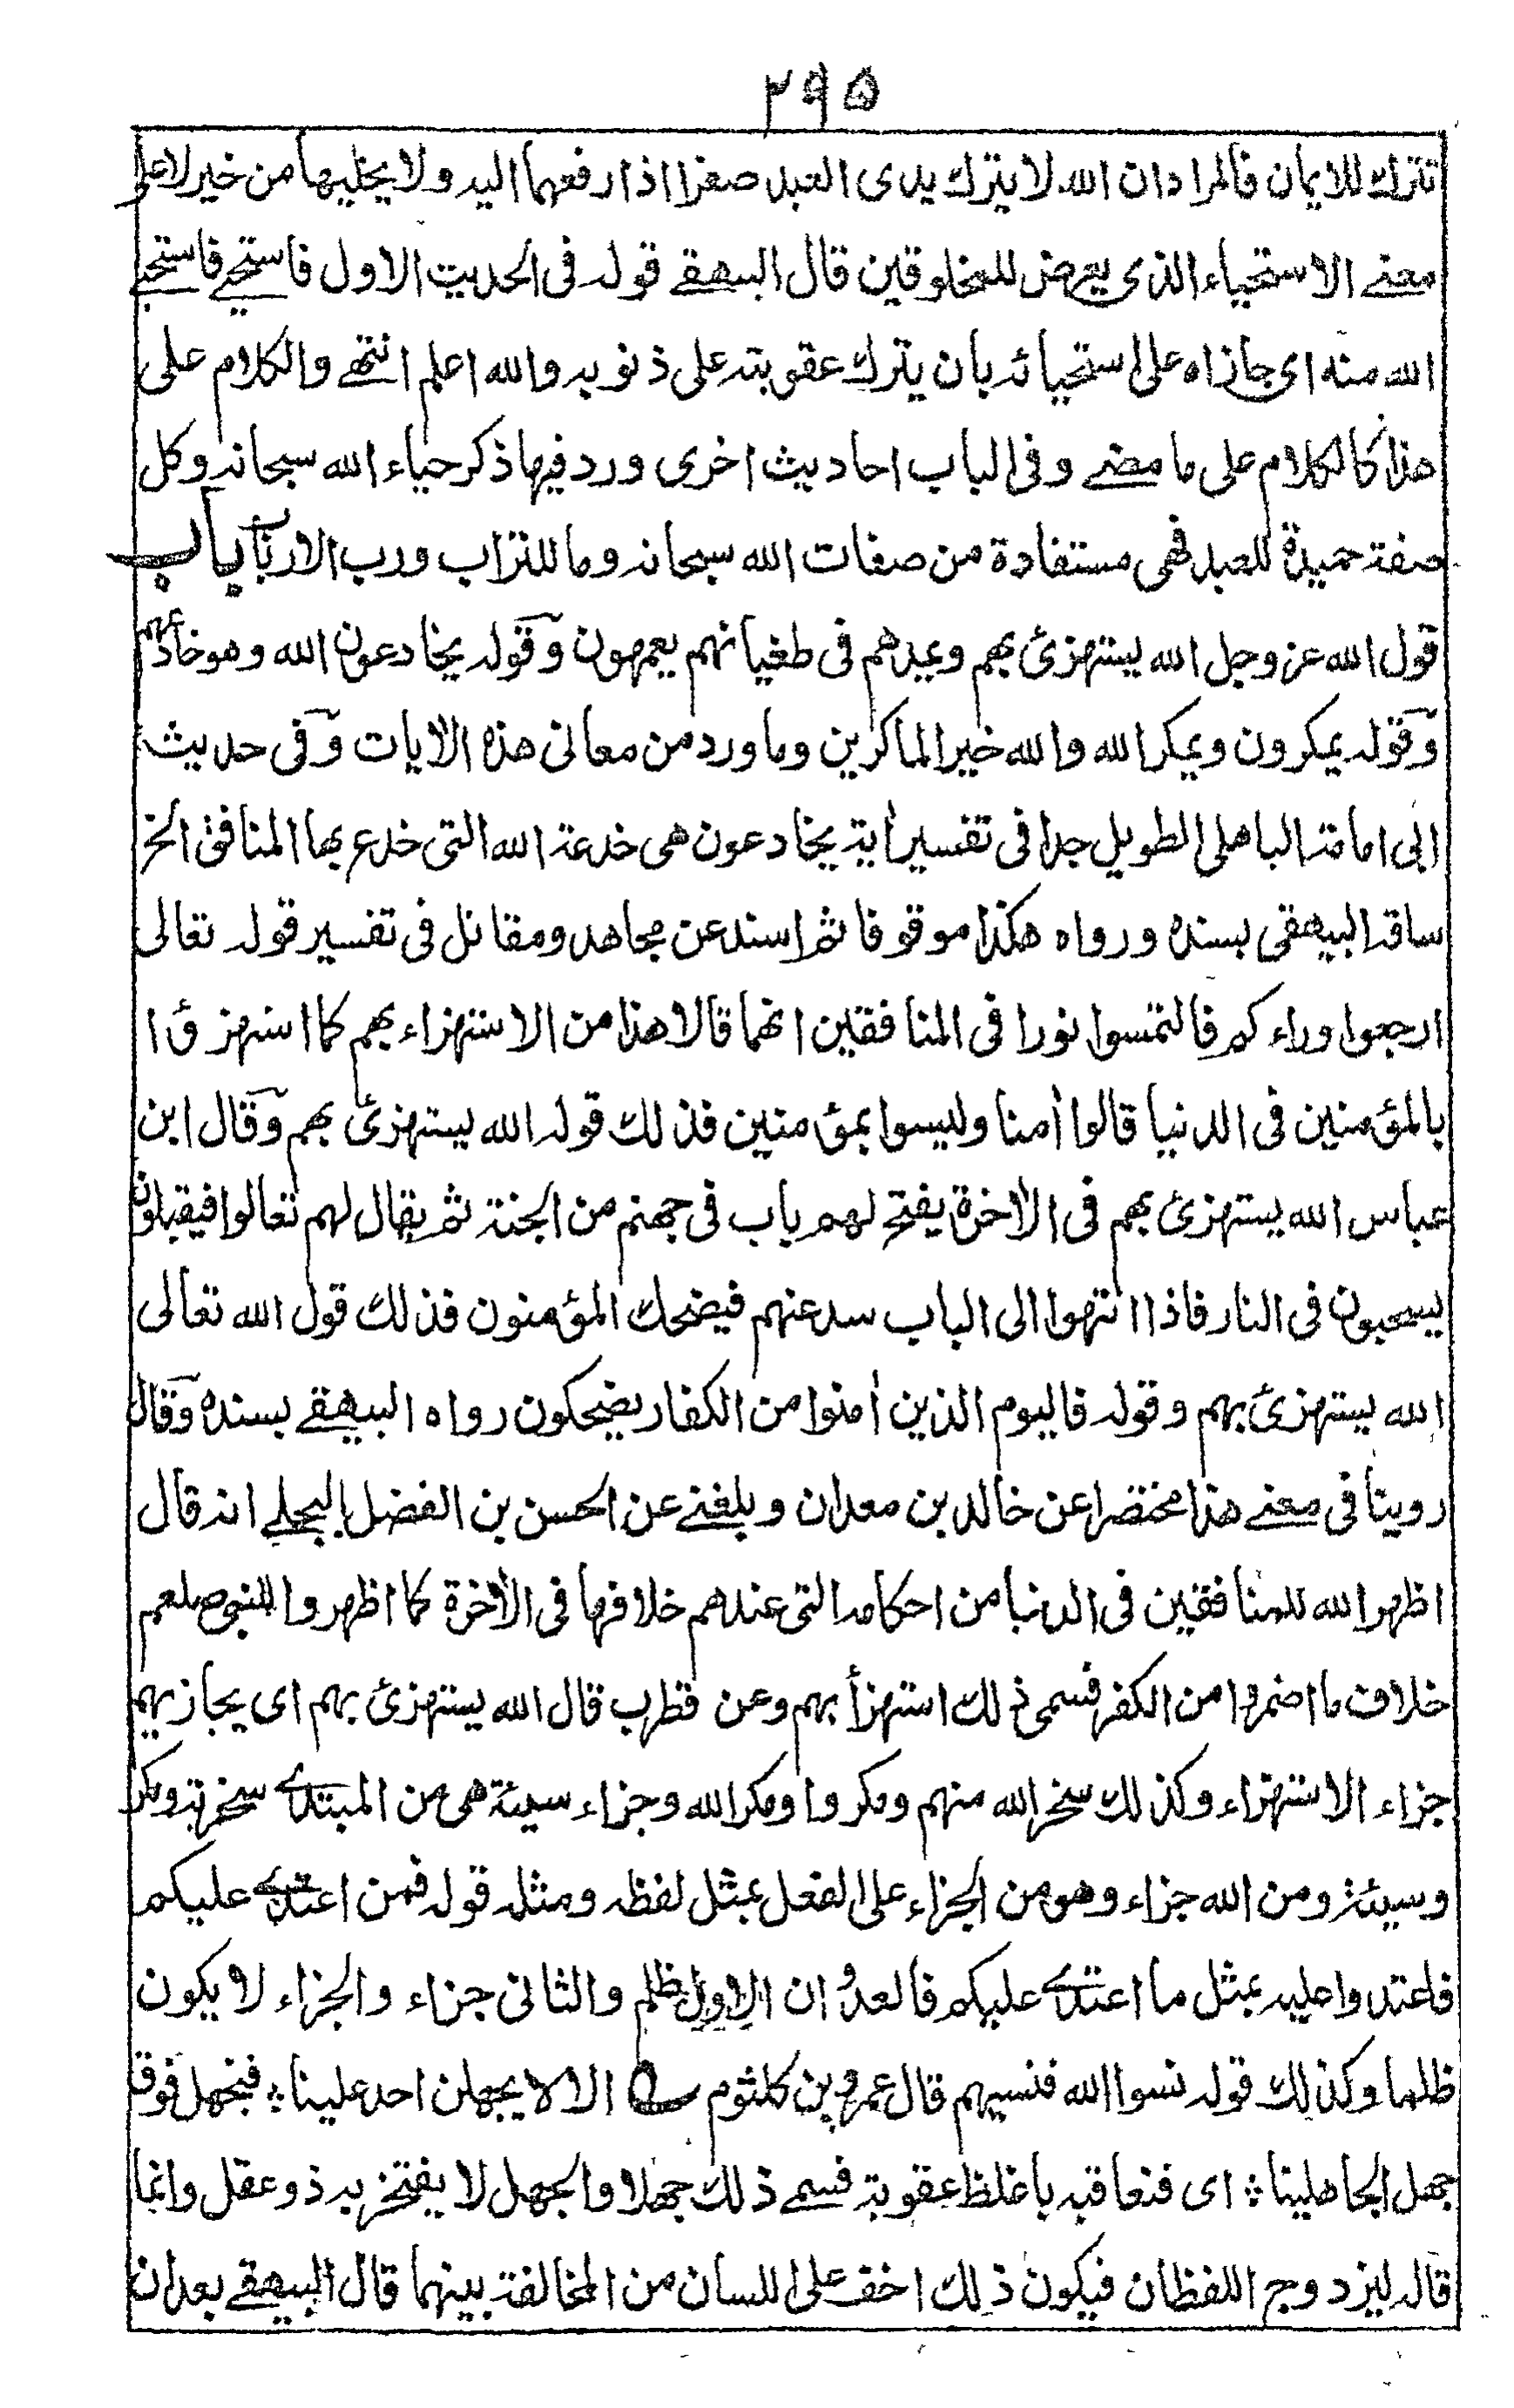 ٢٩٥
تترك للايمان فالمراد ان الله لا يترك يدى العبد صفرا اذا رفعهما اليه ولا يخليها من خير لا على
معنے الاستحياء الذى يعرض للمخلوقين قال البيهقے قوله فى الحديث الاول فاستحيے فاستحيے
الله منه اى جازاه على استحيائه بان يترك عقوبته على ذنوبه والله اعلم انتهے والكلام على
هذا كالكلام على ما مضے وفى الباب احاديث اخرى ورد فيها ذكر حياء الله سبحانه وكل
صفة حميدة للعبد فهى مستفادة من صفات الله سبحانه وما للتراب ورب الارباب باب
قول الله عز وجل الله يستهزئ بهم ويمدهم فى طغيانهم يعمهون وقوله يخادعون الله وهو خادعهم
وقوله يمكرون ويمكر الله والله خير الماكرين وما ورد من معانى هذه الآيات وفى حديث
ابى امامة الباهلى الطويل جدا فى تفسير اٰية يخادعون هى خدعة الله التى خدع بها المنافق الخ
ساقه البيهقى بسنده ورواه هكذا موقوفا ثم اسند عن مجاهد ومقاتل فى تفسير قوله تعالى
ارجعوا وراءكم فالتمسوا نورا فى المنافقين انهما قالا هذا من الاستهزاء بهم كما استهزؤا
بالمؤمنين فى الدنيا قالوا اٰمنا وليسوا بمؤمنين فذلك قوله الله يستهزئ بهم وقال ابن
عباس الله يستهزئ بهم فى الاٰخرة يفتح لهم باب فى جهنم من الجنة ثم يقال لهم تعالوا فيقبلون
يسحبون فى النار فاذا انتهوا الى الباب سد عنهم فيضحك المؤمنون فذلك قول الله تعالى
الله يستهزئ بهم وقوله فاليوم الذين اٰمنوا من الكفار يضحكون رواه البيهقے بسنده وقال
روينا فى معنے هذا مختصرا عن خالد بن معدان وبلغنے عن الحسن بن الفضل البجلے انه قال
اظهر الله للمنافقين فى الدنيا من احكامه التى عندهم خلافها فى الاٰخرة كما اظهروا للنبى صلعم
خلاف ما اضمروا من الكفر فسمى ذلك استهزأ بهم وعن قطرب قال الله يستهزئ بهم اى يجازيهم
جزاء الاستهزاء وكذلك سخر الله منهم ومكروا ومكر الله وجزاء سيئة هى من المبتدے سخرية ومكر
وسيئة ومن الله جزاء وهو من الجزاء على الفعل بمثل لفظه ومثله قوله فمن اعتدے عليكم
فاعتدوا عليه بمثل ما اعتدے عليكم فالعدوان الاول ظلم والثانى جزاء والجزاء لا يكون
ظلما وكذلك قوله نسوا الله فنسيهم قال عمرو بن كلثوم ؎ الا لا يجهلن احد علينا ؞ فنجهل فوق
جهل الجاهلينا ؞ اى فنعاقبه باغلظ عقوبة فسمے ذلك جهلا والجهل لا يفتخر به ذو عقل وانما
قاله ليزدوج اللفظان فيكون ذلك اخف على اللسان من المخالفة بينهما قال البيهقے بعد ان